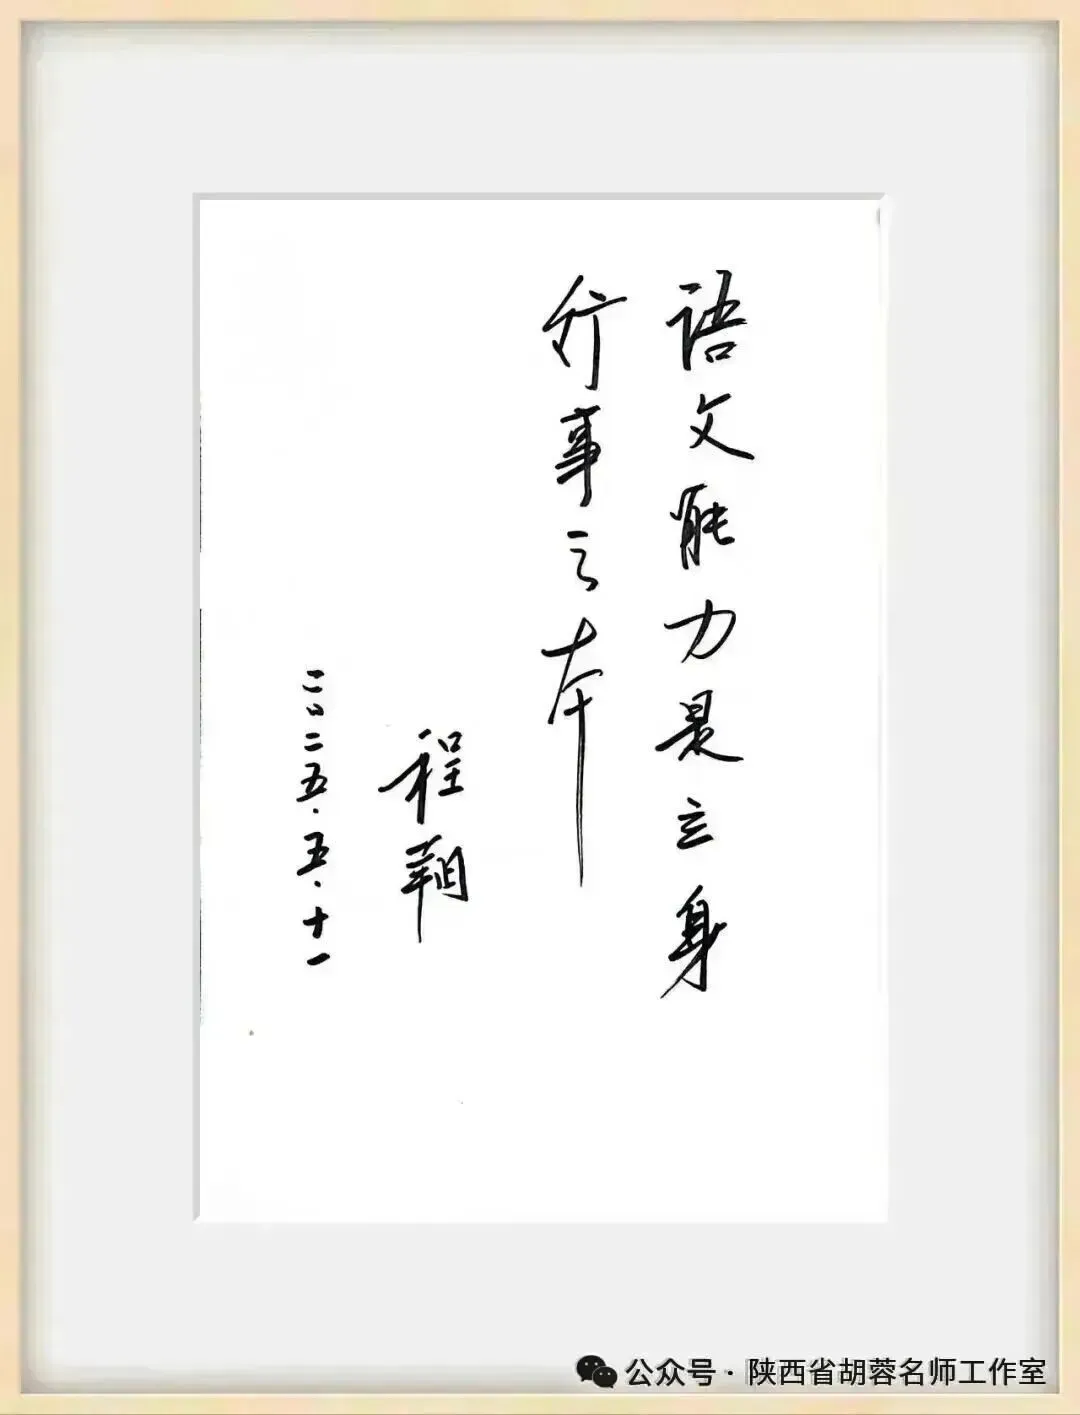 语文能力是立身
行事之本
程翔
二〇二五·五·十一
公众号·陕西省胡蓉名师工作室